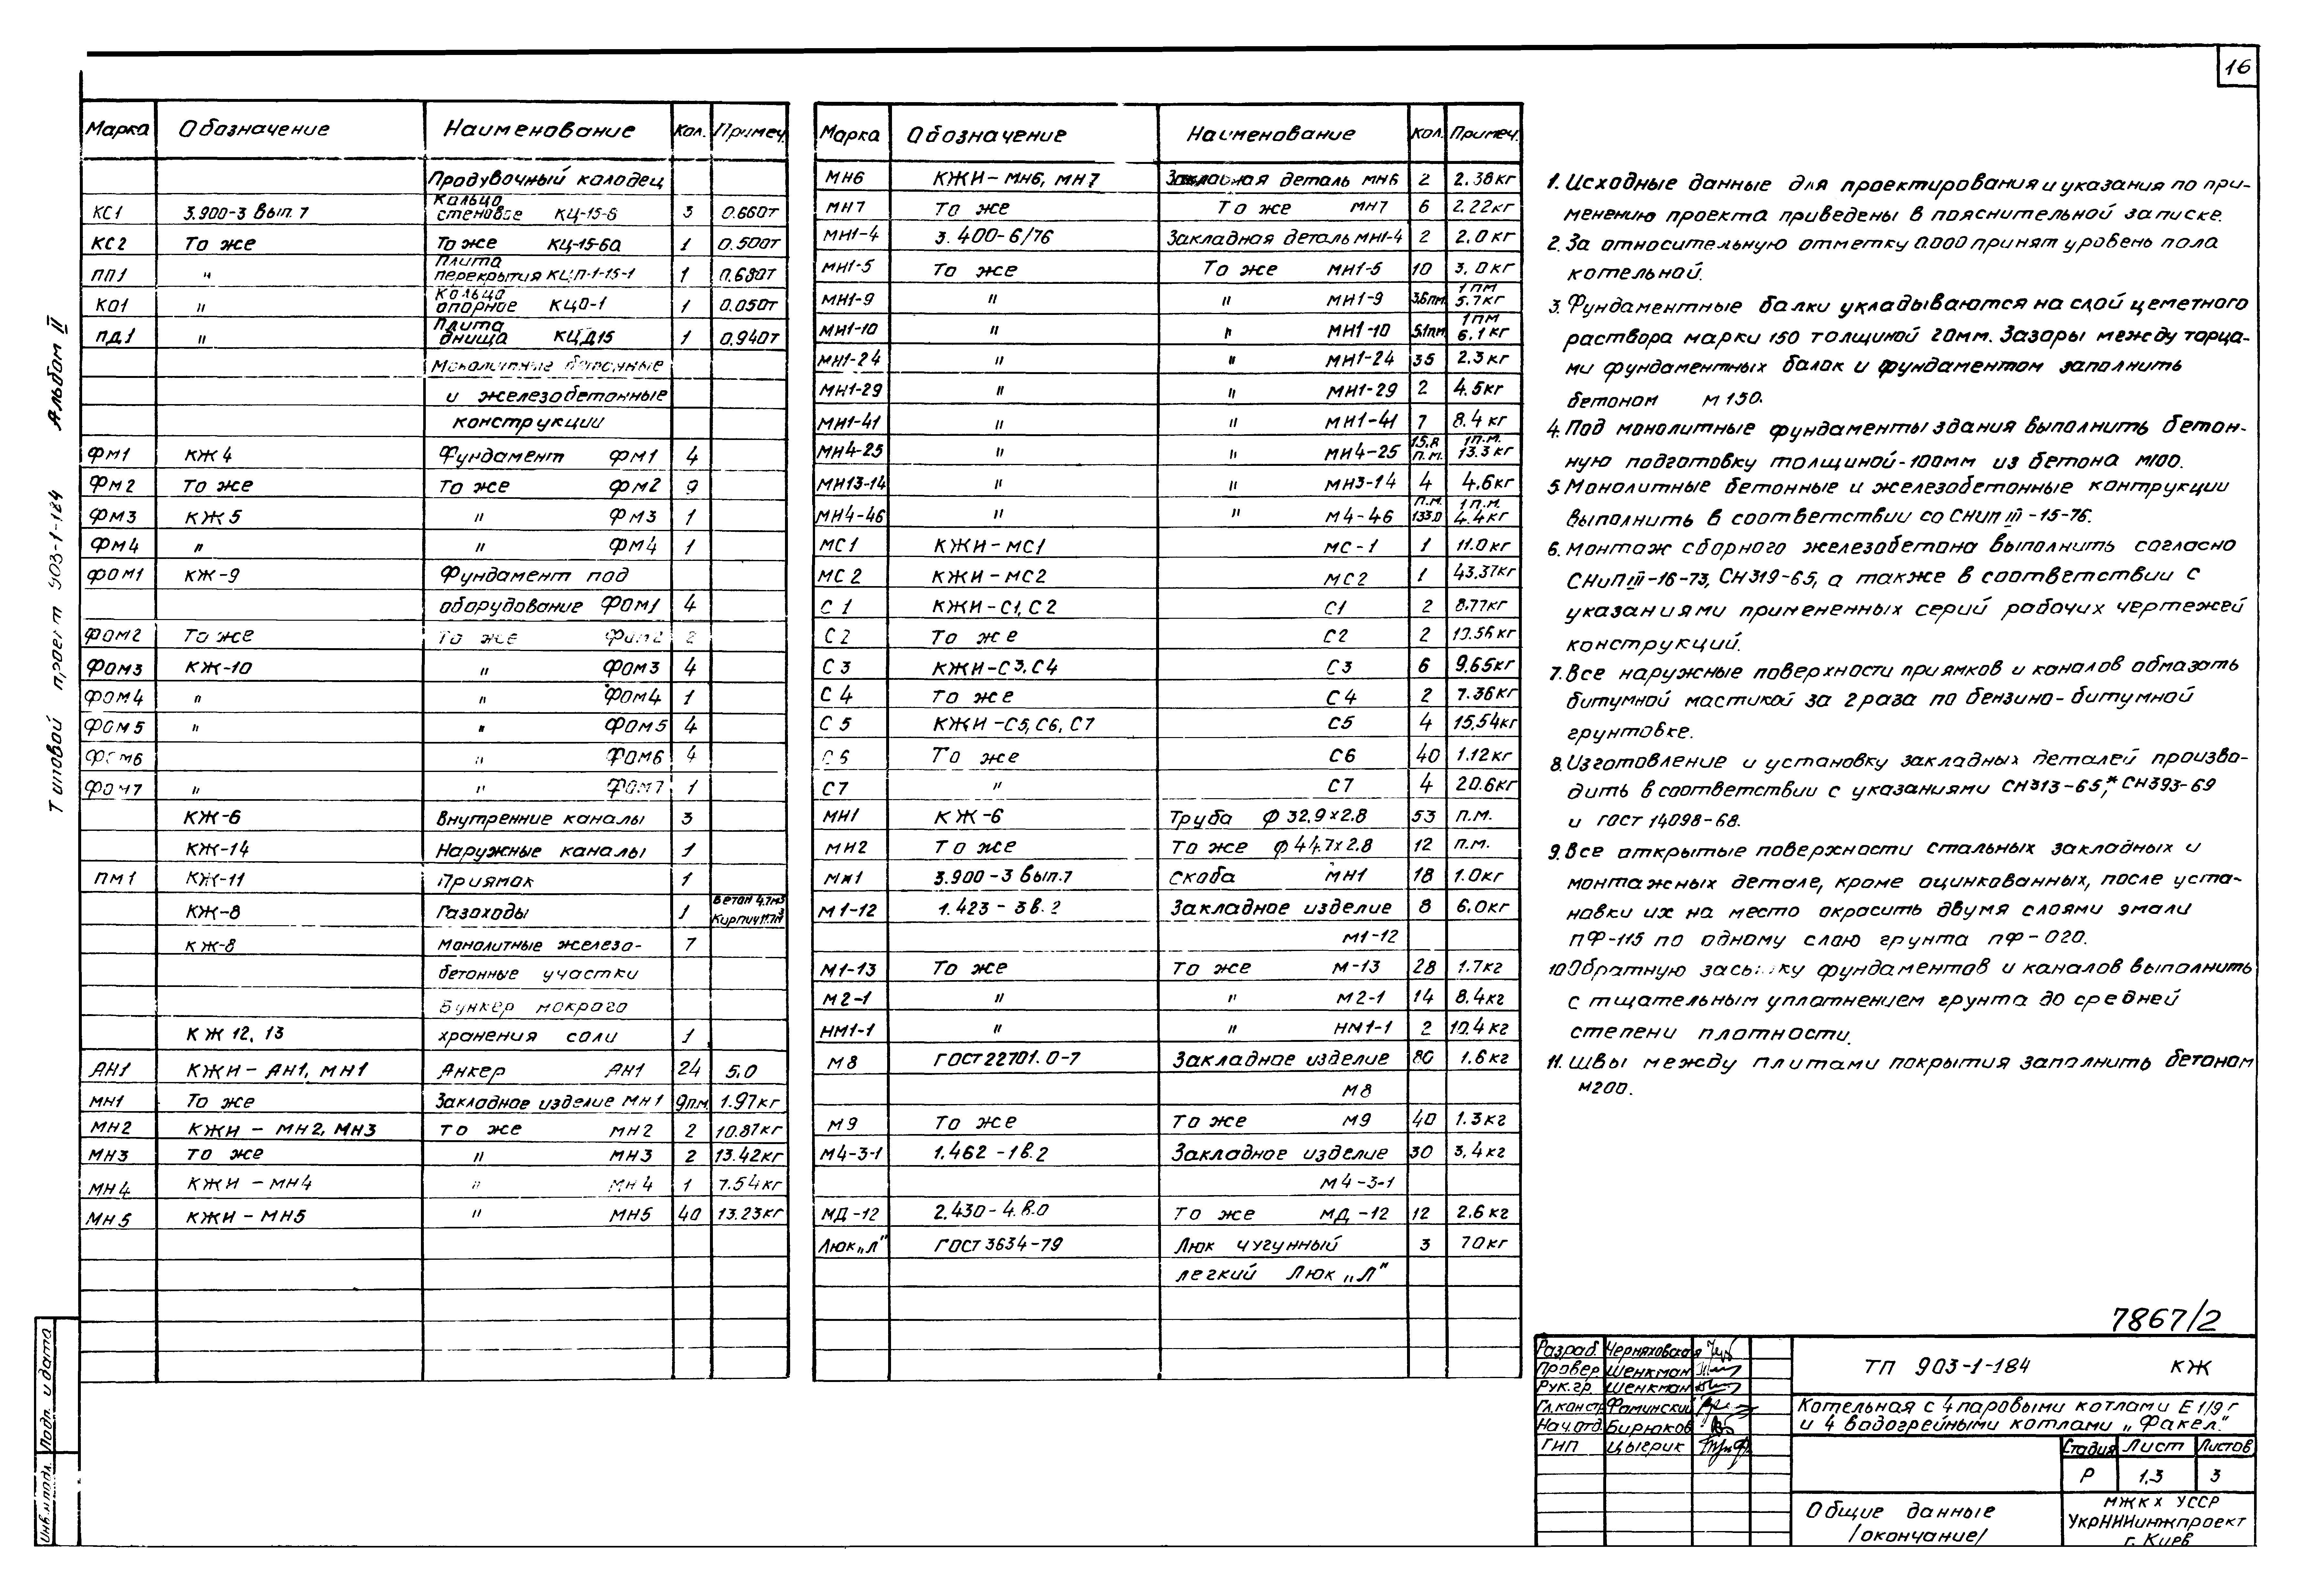 16
Типовой проект 903-1-184 Альбом II
Марка Обозначение Наименование Кол. Примеч.
Продувочный колодец
КС1 3.900-3 вып. 7 Кольцо стеновое КЦ-15-6 3 0.660т
КС2 То же То же КЦ-15-6а 1 0.500т
ПП1 " Плита перекрытия КЦП-1-15-1 1 0.680т
КО1 " Кольцо опорное КЦО-1 1 0.050т
ПД1 " Плита днища КЦД15 1 0.940т
Монолитные бетонные
и железобетонные
конструкции
ФМ1 КЖ4 Фундамент ФМ1 4
ФМ2 То же То же ФМ2 9
ФМ3 КЖ5 " ФМ3 1
ФМ4 " " ФМ4 1
ФОМ1 КЖ-9 Фундамент под
оборудование ФОМ1 4
ФОМ2 То же То же ФОМ2 2
ФОМ3 КЖ-10 " ФОМ3 4
ФОМ4 " " ФОМ4 1
ФОМ5 " " ФОМ5 4
ФОМ6 " ФОМ6 4
ФОМ7 " " ФОМ7 1
КЖ-6 Внутренние каналы 3
КЖ-14 Наружные каналы 1
ПМ1 КЖ-11 Приямок 1
КЖ-8 Газоходы 1 Бетон 4,7м3 Кирпич 11.7м3
КЖ-8 Монолитные железо- 7
бетонные участки
Бункер мокрого
КЖ 12, 13 хранения соли 1
АН1 КЖИ-АН1, МН1 Анкер АН1 24 5.0
МН1 То же Закладное изделие МН1 9пм 1.97кг
МН2 КЖИ-МН2, МН3 То же МН2 2 10.87кг
МН3 То же " МН3 2 13.42кг
МН4 КЖИ-МН4 " МН4 1 7.54кг
МН5 КЖИ-МН5 " МН5 40 13.23кг
Марка Обозначение Наименование Кол. Примеч.
МН6 КЖИ-МН6, МН7 Закладная деталь МН6 2 2.38кг
МН7 То же То же МН7 6 2.22кг
МН1-4 3.400-6/76 Закладная деталь МН1-4 2 2.0кг
МН1-5 То же То же МН1-5 10 3.0кг
МН1-9 " " МН1-9 3.6пм 1пм 5.7кг
МН1-10 " " МН1-10 5.1пм 1пм 6.1кг
МН1-24 " " МН1-24 36 2.3кг
МН1-29 " " МН1-29 2 4.5кг
МН1-41 " " МН1-41 7 8.4кг
МН4-25 " " МН4-25 15.8 п.м. 1п.м. 13.3кг
МН13-14 " " МН3-14 4 4.6кг
МН4-46 " " М4-46 п.м. 133.0 1п.м. 4.4кг
МС1 КЖИ-МС1 МС-1 1 11.0кг
МС2 КЖИ-МС2 МС2 1 43.37кг
С1 КЖИ-С1, С2 С1 2 8.77кг
С2 То же С2 2 10.56кг
С3 КЖИ-С3, С4 С3 6 9.65кг
С4 То же С4 2 7.36кг
С5 КЖИ-С5, С6, С7 С5 4 15.54кг
С6 То же С6 40 1.12кг
С7 " С7 4 20.6кг
МН1 КЖ-6 Труба ф 32.9×2.8 53 п.м.
МН2 То же То же ф 44.7×2.8 12 п.м.
МН1 3.900-3 вып.7 Скоба МН1 18 1.0кг
М1-12 1.423-3 в.2 Закладное изделие 8 6.0кг
М1-12
М1-13 То же То же М-13 28 1.7кг
М2-1 " " М2-1 14 8.4кг
НМ1-1 " " НМ1-1 2 10.4кг
М8 ГОСТ 22701.0-7 Закладное изделие 80 1.6кг
М8
М9 То же То же М9 40 1.3кг
М4-3-1 1.462-1 в.2 Закладное изделие 30 3.4кг
М4-3-1
МД-12 2.430-4.в.0 То же МД-12 12 2.6кг
Люк „Л" ГОСТ 3634-79 Люк чугунный 3 70кг
легкий Люк „Л"
1. Исходные данные для проектирования и указания по при-
менению проекта приведены в пояснительной записке.
2. За относительную отметку 0.000 принят уровень пола
котельной.
3. Фундаментные балки укладываются на слой цеметного
раствора марки 150 толщиной 20мм. Зазоры между торца-
ми фундаментных балок и фундаментом заполнить
бетоном М150.
4. Под монолитные фундаменты здания выполнить бетон-
ную подготовку толщиной-100мм из бетона М100.
5. Монолитные бетонные и железобетонные контрукции
выполнить в соответствии со СНиП III-15-76.
6. Монтаж сборного железобетона выполнить согласно
СНиП III-16-73, СН319-65, а также в соответствии с
указаниями примененных серий рабочих чертежей
конструкций.
7. Все наружные поверхности приямков и каналов обмазать
битумной мастикой за 2 раза по бензино-битумной
грунтовке.
8. Изготовление и установку закладных деталей произво-
дить в соответствии с указаниями СН313-65,* СН393-69
и ГОСТ 14098-68.
9. Все открытые поверхности стальных закладных и
монтажных детале, кроме оцинкованных, после уста-
новки их на место окрасить двумя слоями эмали
ПФ-115 по одному слою грунта ПФ-020.
10 Обратную засыпку фундаментов и каналов выполнить
с тщательным уплотнением грунта до средней
степени плотности.
11. Швы между плитами покрытия заполнить бетоном
М200.
7867/2
Разраб. Черняховская
Провер Шенкман
Рук.гр. Шенкман
Гл.констр Фаминский
Нач.отд. Бирюков
ГИП Цыгрик
ТП 903-1-184 КЖ
Котельная с 4 паровыми котлами Е 1/9 г
и 4 водогрейными котлами „Факел".
Стадия Лист Листов
Р 1.3 3
Общие данные
/окончание/
МЖКХ УССР
УкрНИИинжпроект
г. Киев
Инв.N подл. Подп. и дата